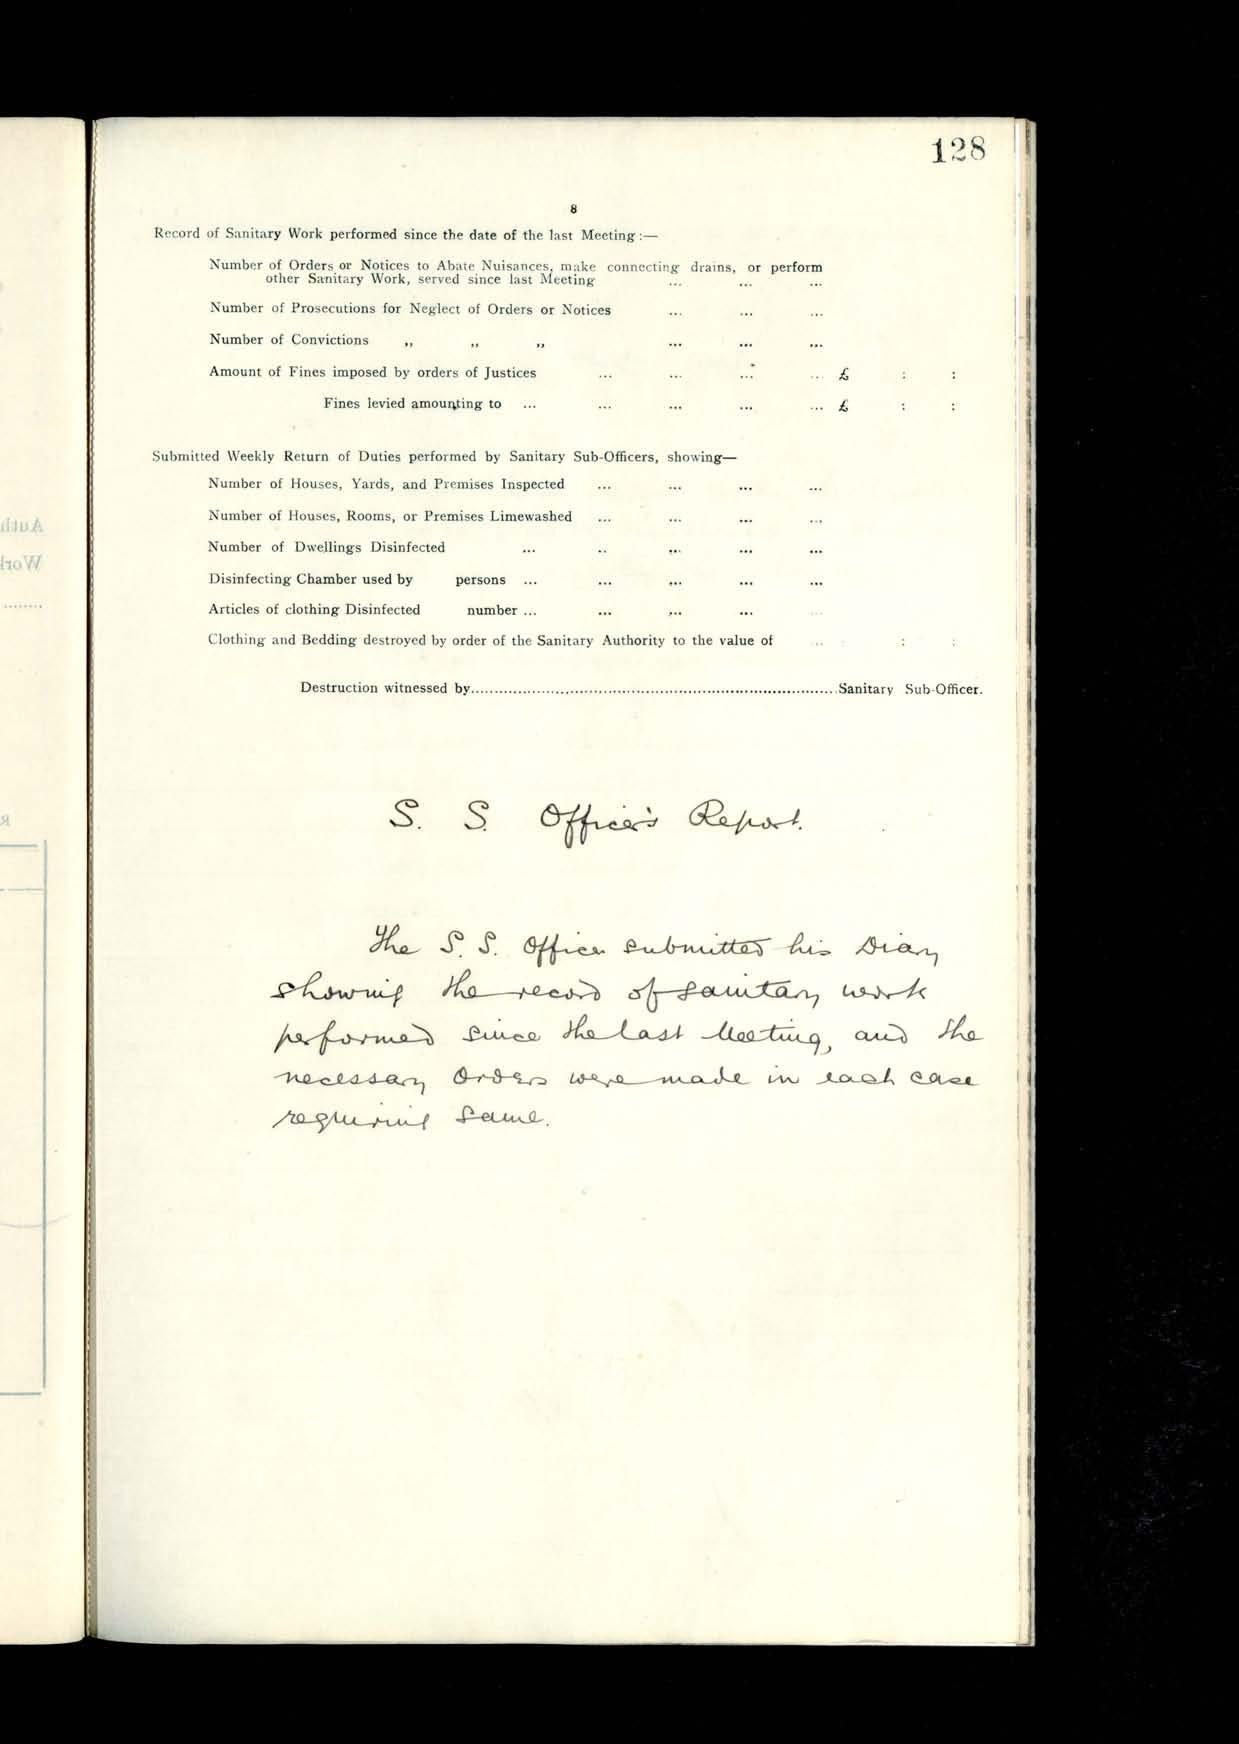 128
8
Record of Sanitary Work performed since the date of the last Meeting :—
Number of Orders or Notices to Abate Nuisances, make connecting drains, or perform
other Sanitary Work, served since last Meeting ... ... ...
Number of Prosecutions for Neglect of Orders or Notices ... ... ...
Number of Convictions „ „ „ ... ... ...
Amount of Fines imposed by orders of Justices ... ... ... ... £ : :
Fines levied amounting to ... ... ... ... ... £ : :
Submitted Weekly Return of Duties performed by Sanitary Sub-Officers, showing—
Number of Houses, Yards, and Premises Inspected ... ... ... ...
Number of Houses, Rooms, or Premises Limewashed ... ... ... ...
Number of Dwellings Disinfected ... .. ... ... ...
Disinfecting Chamber used by persons ... ... ... ... ...
Articles of clothing Disinfected number ... ... ... ... ...
Clothing and Bedding destroyed by order of the Sanitary Authority to the value of ... : :
Destruction witnessed by..............................................................................Sanitary Sub-Officer.
S. S. Officer's Report.
The S. S. Officer submitted his Diary
showing the record of sanitary work
performed since the last Meeting, and the
necessary Orders were made in each case
requiring same.